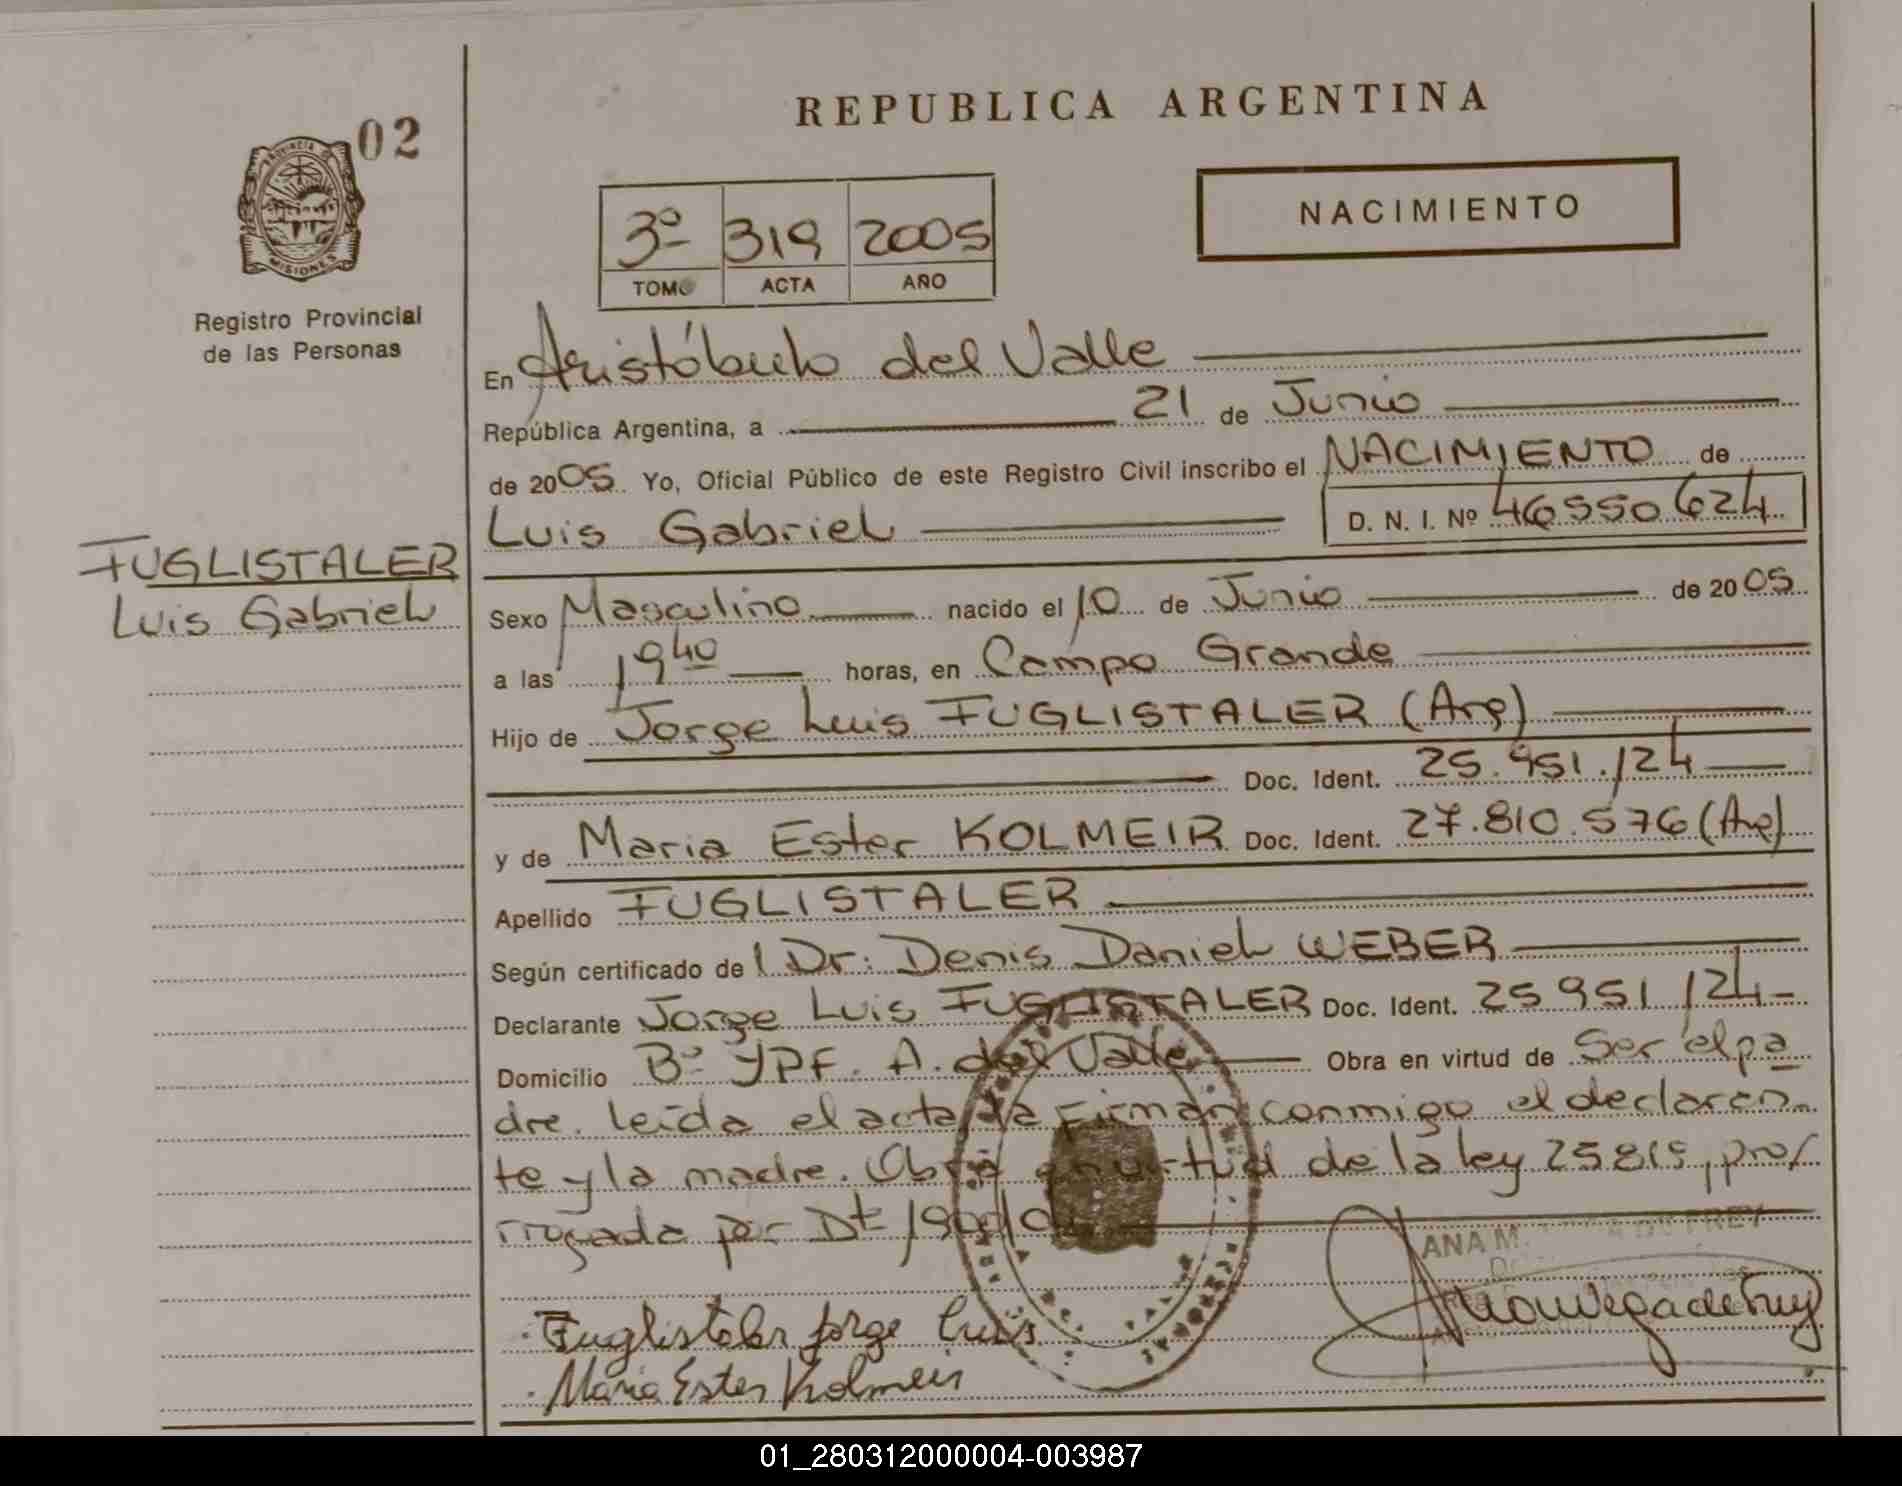 02
PROVINCIA DE
MISIONES
Registro Provincial
de las Personas
REPUBLICA ARGENTINA
NACIMIENTO
3º 319 2005
TOMO ACTA AÑO
En Aristóbulo del Valle
República Argentina, a 21 de Junio
de 2005 Yo, Oficial Público de este Registro Civil inscribo el NACIMIENTO de
Luis Gabriel D. N. I. Nº 46550624
FUGLISTALER
Luis Gabriel
Sexo Masculino nacido el 10 de Junio de 2005
a las 19 40 horas, en Campo Grande
Hijo de Jorge Luis FUGLISTALER (Arg)
Doc. Ident. 25.951.124
y de Maria Ester KOLMEIR Doc. Ident. 27.810.576 (Arg)
Apellido FUGLISTALER
Según certificado de l Dr. Denis Daniel WEBER
Declarante Jorge Luis FUGLISTALER Doc. Ident. 25951124
Domicilio Bº YPF. A. del Valle Obra en virtud de Ser el pa
dre. leída el acta la firman conmigo el declaran
te y la madre. Obra en virtud de la ley 25819, pror
rrogada por Dt
Fuglistaler Jorge Luis
Maria Ester Kolmeir
ANA M. DE FREY
01_280312000004-003987